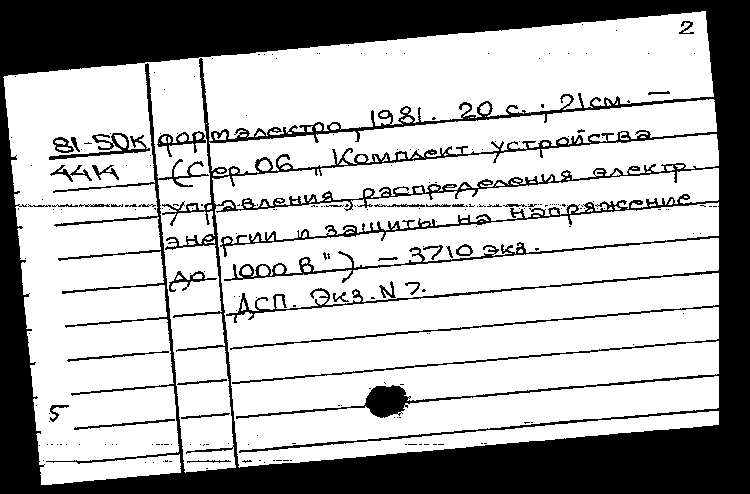 2
81-50к формэлектро, 1981. 20 с. ; 21 см. —
(Сер. 06 „Комплект. устройства
управления, распределения электр.
энергии и защиты на напряжение
до 1000 В"). — 3710 экз.
ДСП. Экз. N
5